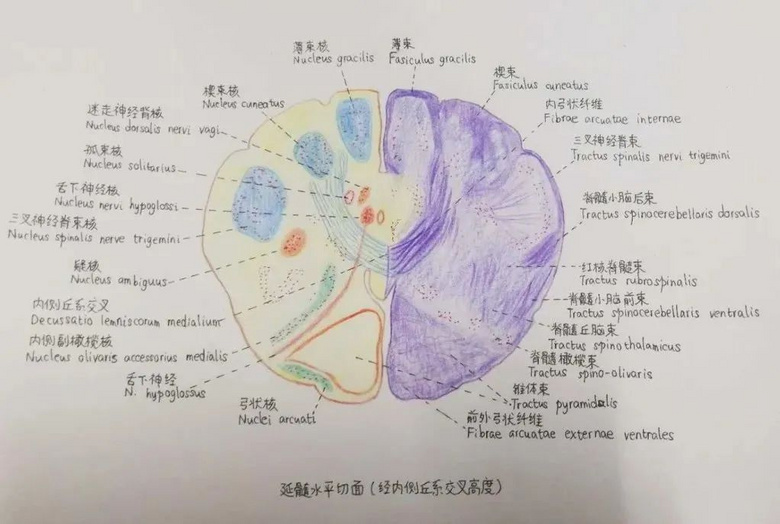 薄束核
Nucleus gracilis
薄束
Fasiculus gracilis
楔束核
Nucleus cuneatus
楔束
Fasiculus cuneatus
迷走神经背核
Nucleus dorsalis nervi vagi
内弓状纤维
Fibrae arcuatae internae
孤束核
Nucleus solitarius
三叉神经脊束
Tractus spinalis nervi trigemini
舌下神经核
Nucleus nervi hypoglossi
脊髓小脑后束
Tractus spinocerebellaris dorsalis
三叉神经脊束核
Nucleus spinalis nerve trigemini
疑核
Nucleus ambiguus
红核脊髓束
Tractus rubrospinalis
内侧丘系交叉
Decussatio lemniscorum medialium
脊髓小脑前束
Tractus spinocerebellaris ventralis
内侧副橄榄核
Nucleus olivaris accessorius medialis
脊髓丘脑束
Tractus spinothalamicus
脊髓橄榄束
Tractus spino-olivaris
舌下神经
N. hypoglossus
锥体束
Tractus pyramidalis
弓状核
Nuclei arcuati
前外弓状纤维
Fibrae arcuatae externae ventrales
延髓水平切面(经内侧丘系交叉高度)